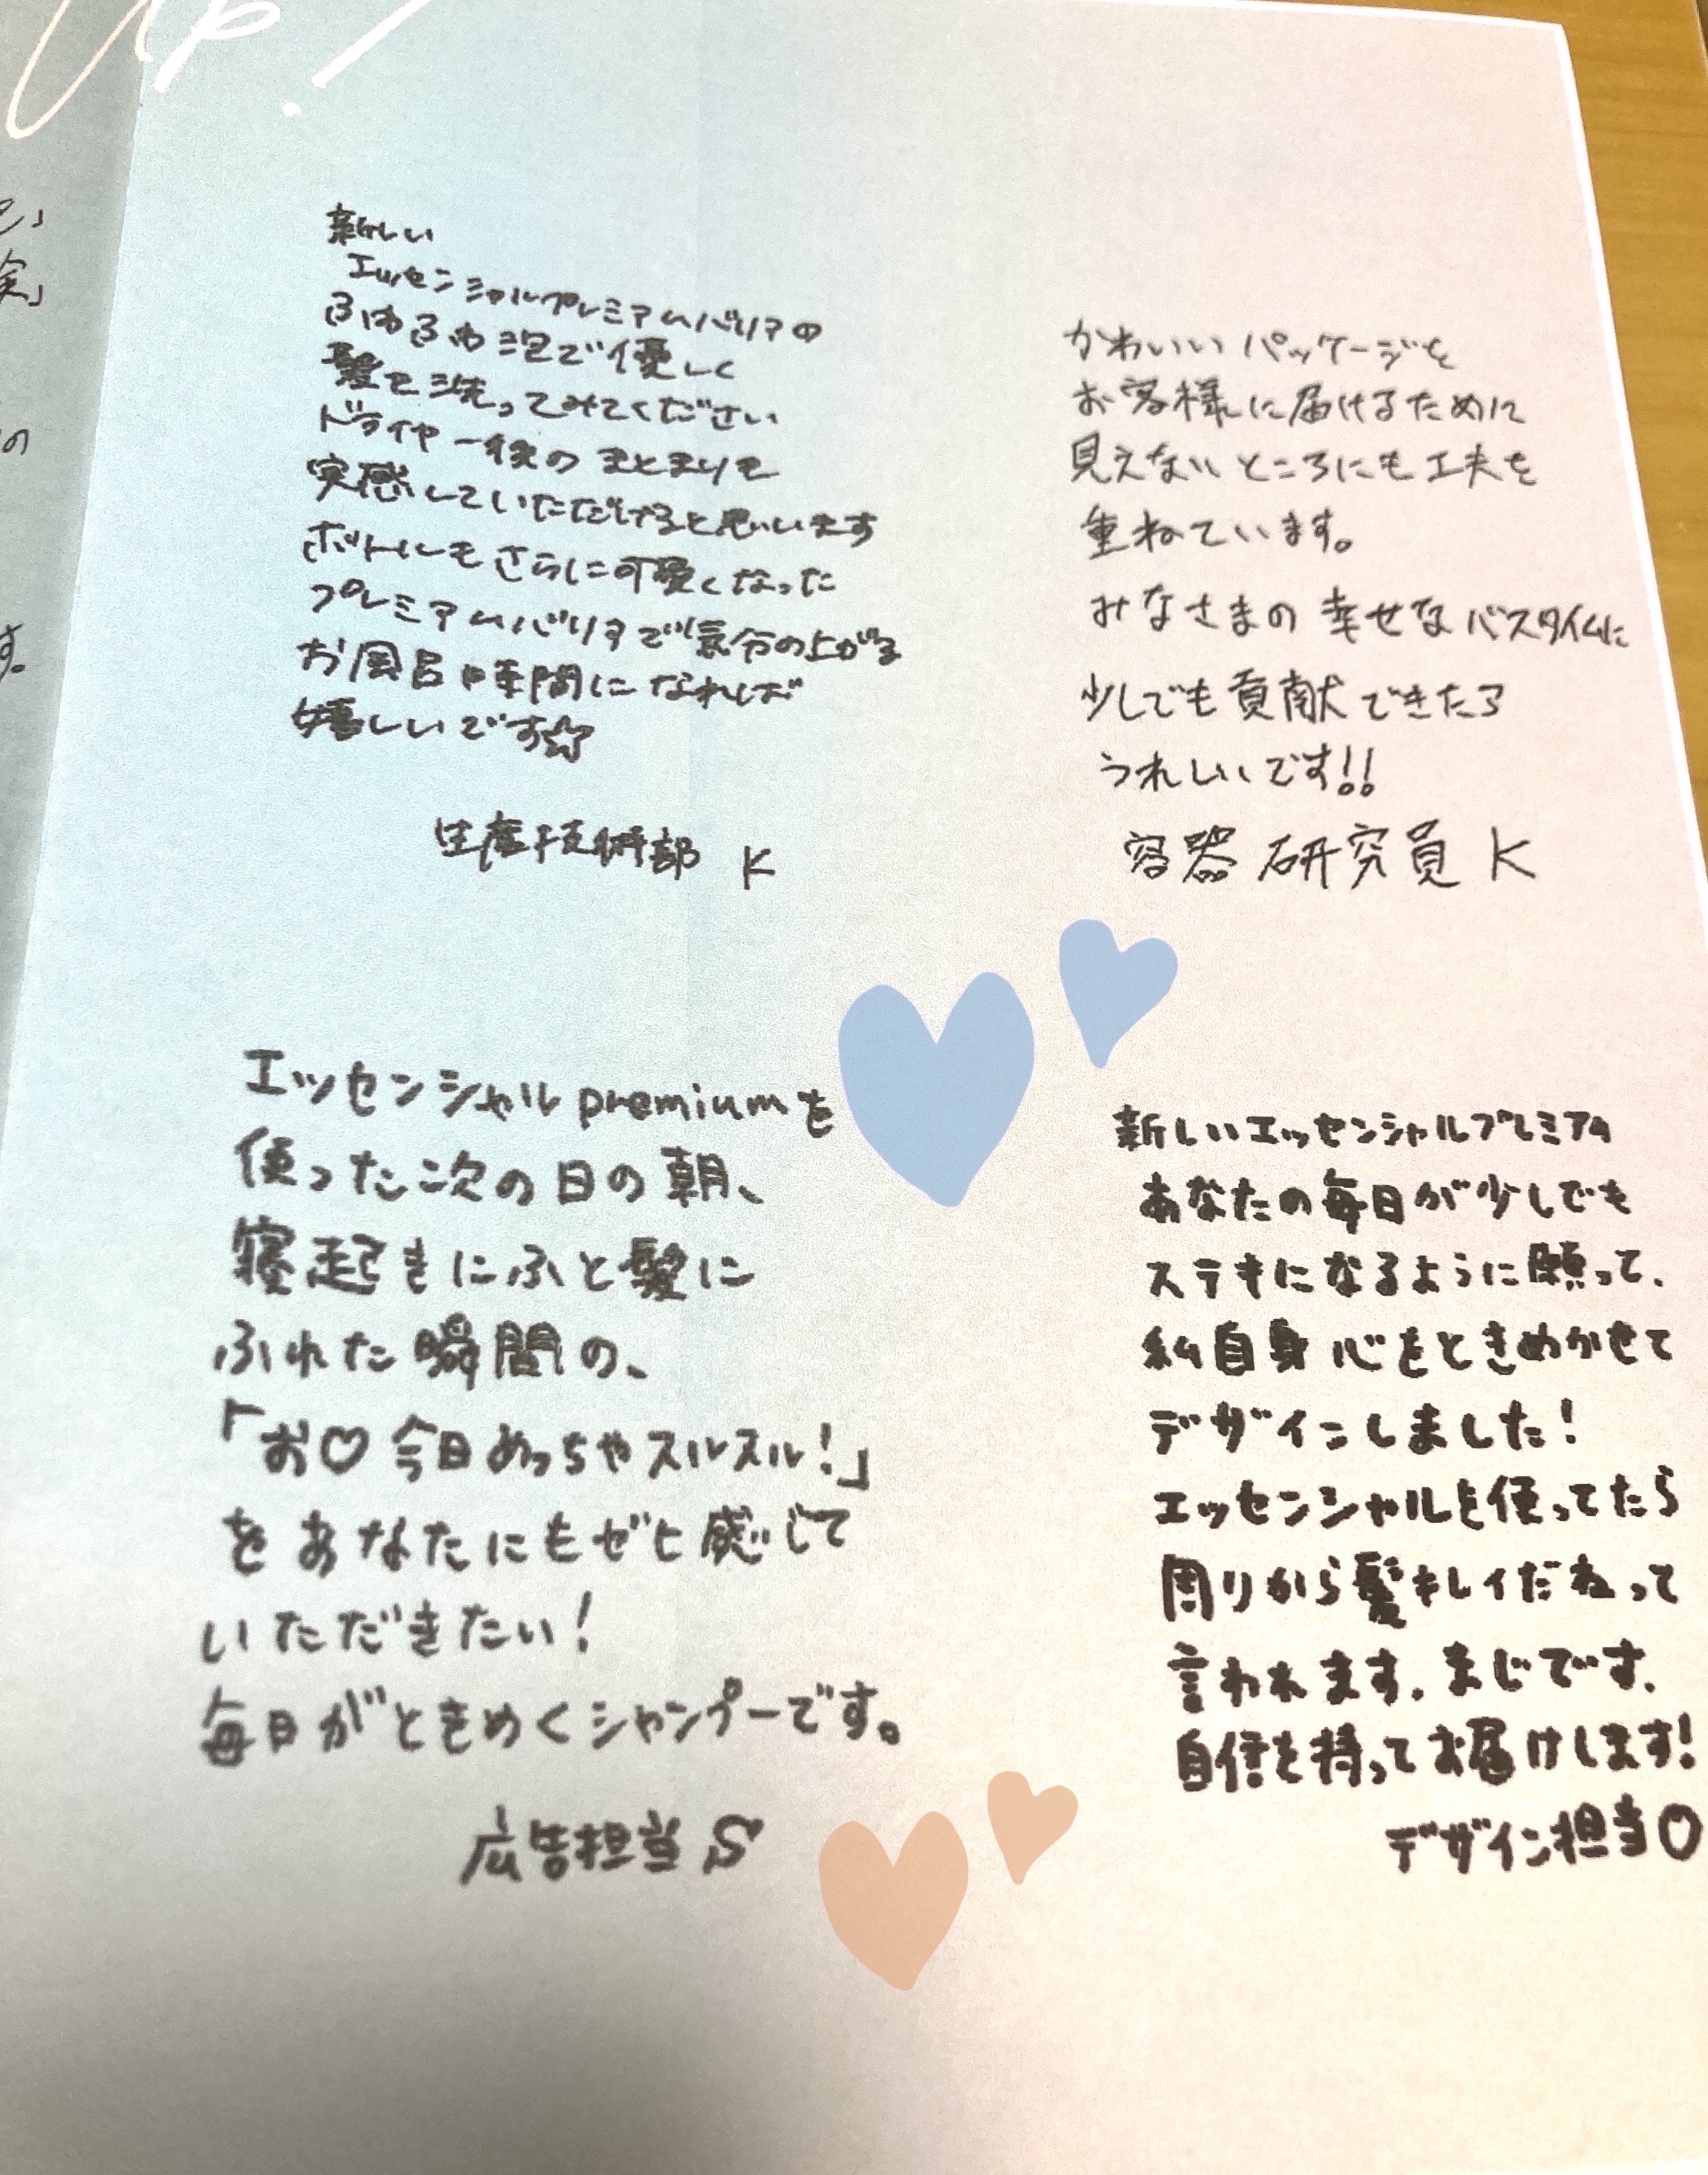 up!
新しい
エッセンシャルプレミアムバリアの
ふわふわ泡で優しく
髪を洗ってみてください
ドライヤー後のまとまりを
実感していただけると思います
ボトルもさらに可愛くなった
プレミアムバリアで気分の上がる
お風呂時間になれば
嬉しいです☆
生産技術部 K
かわいいパッケージを
お客様に届けるために
見えないところにも工夫を
重ねています。
みなさまの幸せなバスタイムに
少しでも貢献できたら
うれしいです!!
容器研究員 K
エッセンシャルpremiumを
使った次の日の朝、
寝起きにふと髪に
ふれた瞬間の、
「お♡今日めっちゃスルスル!」
をあなたにもゼヒ感じて
いただきたい!
毎日がときめくシャンプーです。
広告担当 S
新しいエッセンシャルプレミアム
あなたの毎日が少しでも
ステキになるように願って、
私自身心をときめかせて
デザインしました!
エッセンシャルを使ってたら
周りから髪キレイだねって
言われます。まじです。
自信を持ってお届けします!
デザイン担当O